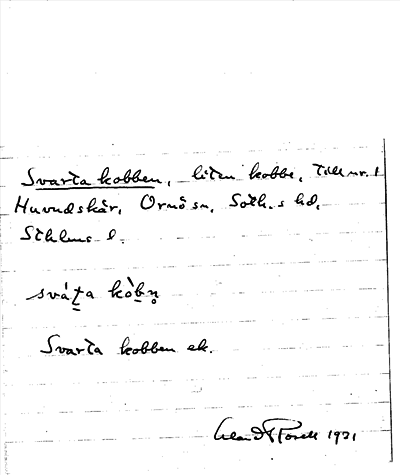 Svarta kobben, liten kobbe, till nr. 1
Huvudskär, Ornö sn, Soth.s hd,
Sthlms l.
svát̲a kòb̲n̥
Svarta kobben ek.
1921